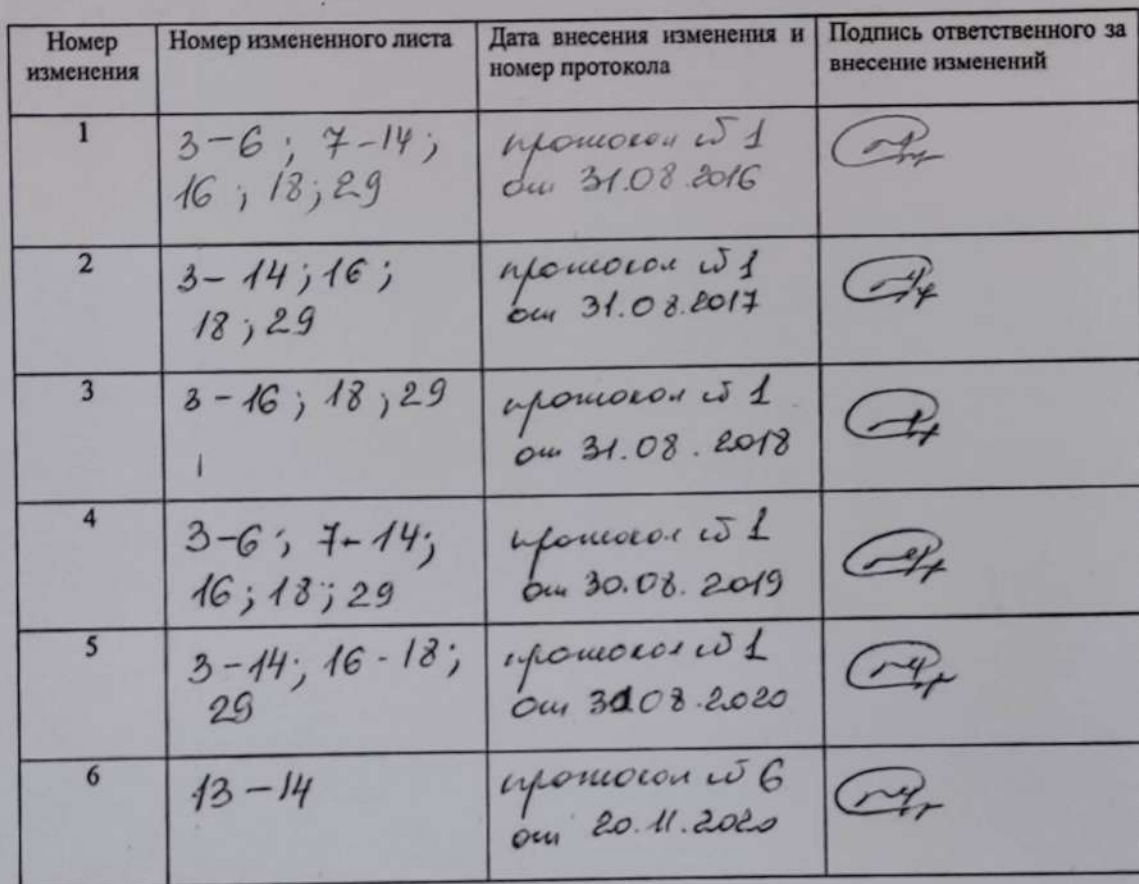 Номер изменения
Номер измененного листа
Дата внесения изменения и номер протокола
Подпись ответственного за внесение изменений
1
3-6; 7-14;
16; 18; 29
протокол № 1
от 31.08.2016
2
3-14; 16;
18; 29
протокол № 1
от 31.08.2017
3
3-16; 18; 29
протокол № 1
от 31.08.2018
4
3-6; 7-14;
16; 18; 29
протокол № 1
от 30.08.2019
5
3-14; 16-18;
29
протокол № 1
от 08.2020
6
13-14
протокол № 6
от 20.11.2020